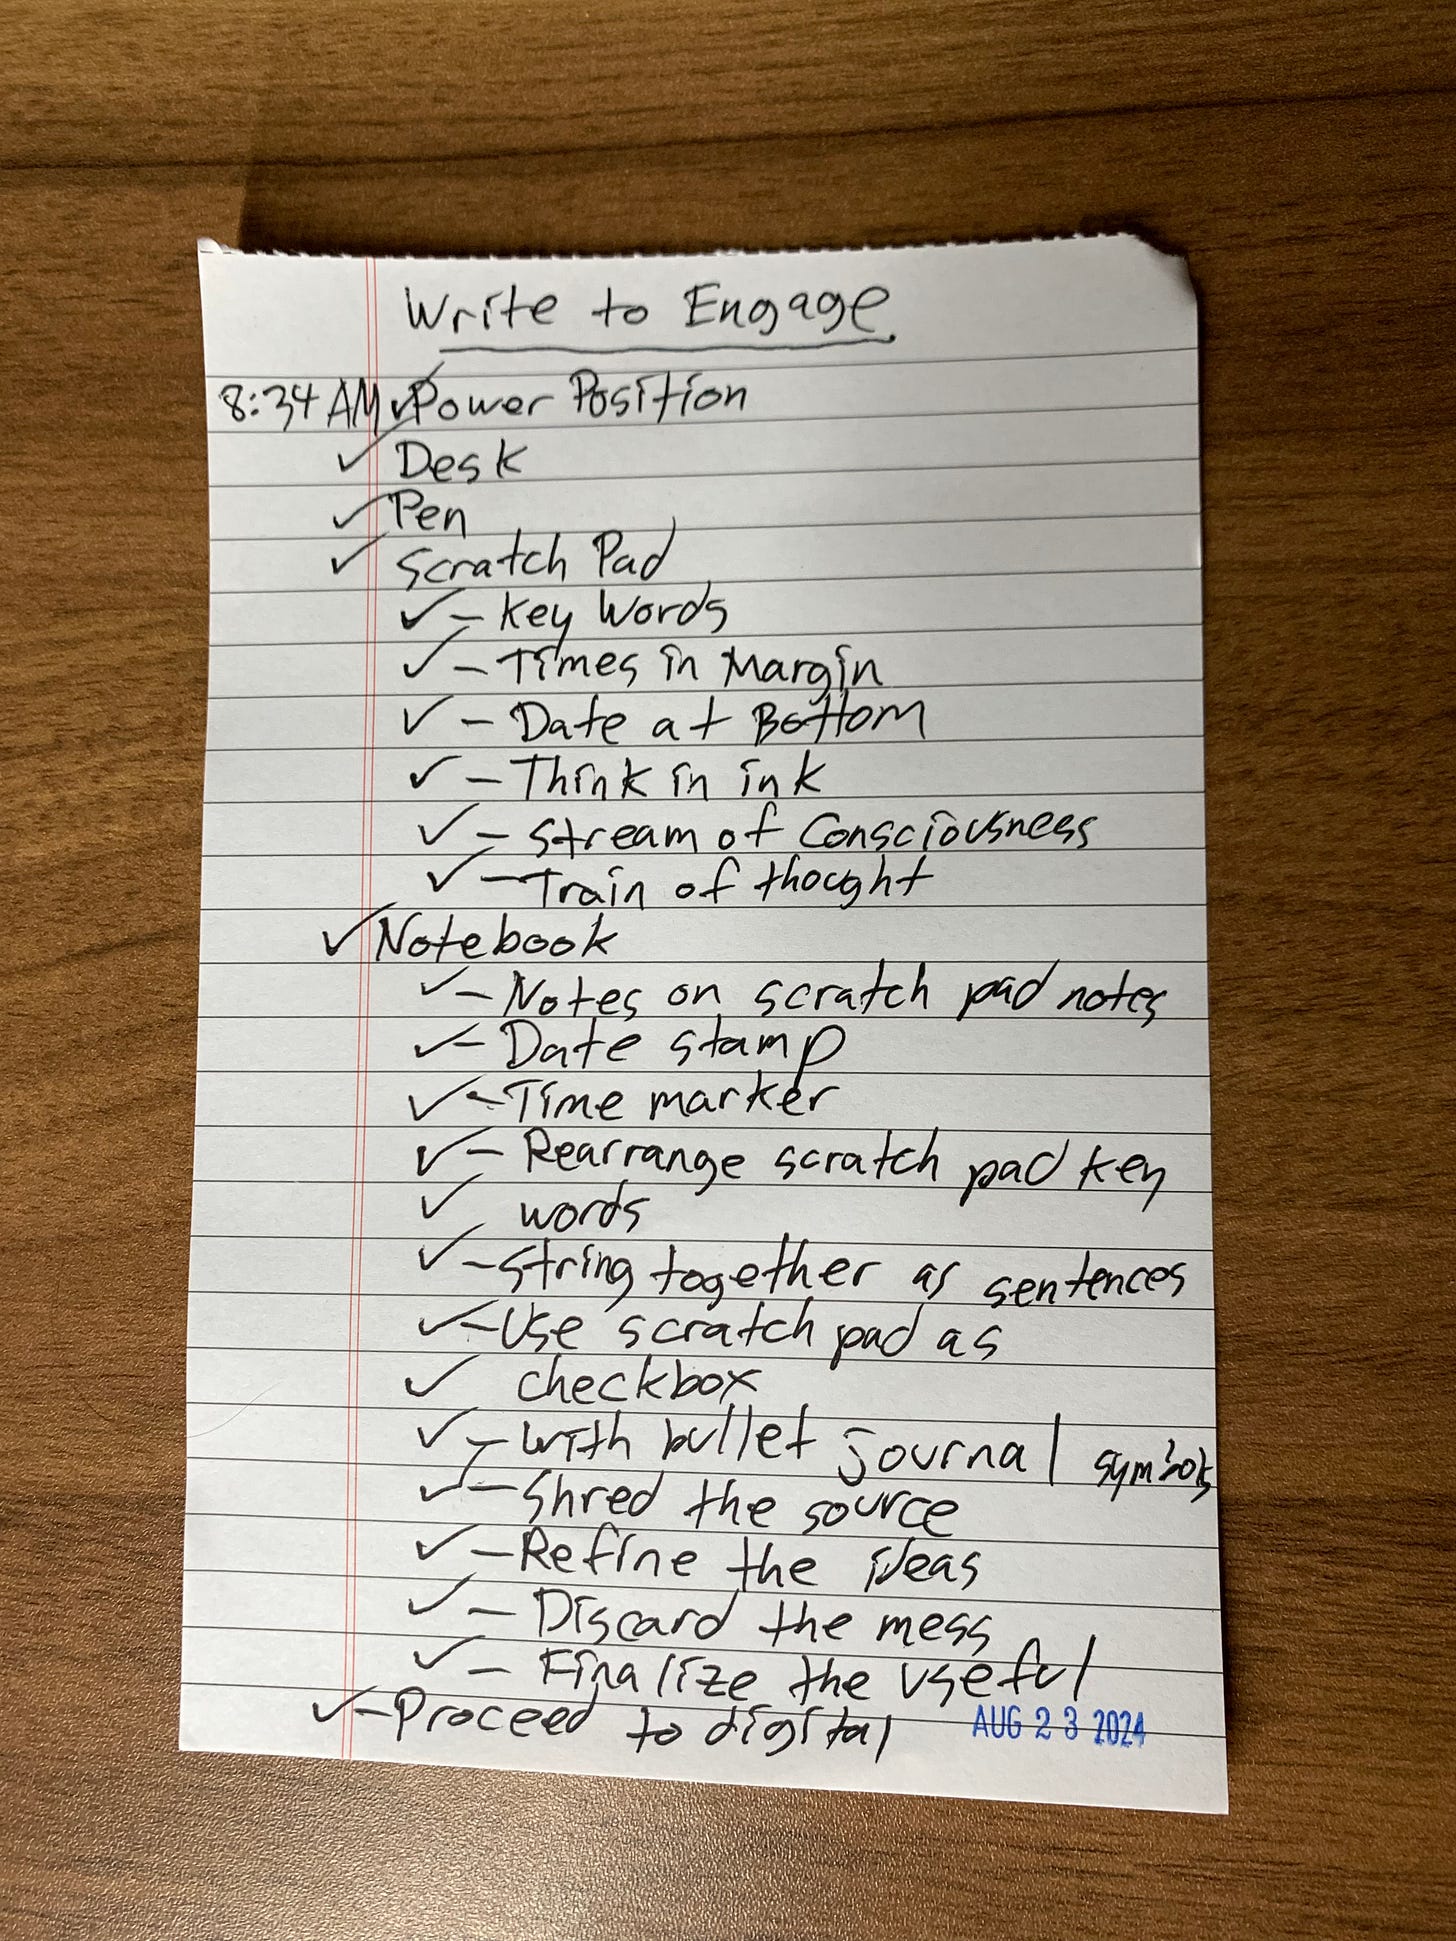 Write to Engage
8:34 AM ✓Power Position
✓ Desk
✓ Pen
✓ Scratch Pad
✓ - Key Words
✓ - Times in Margin
✓ - Date at Bottom
✓ - Think in ink
✓ - Stream of Consciousness
✓ - Train of thought
✓ Notebook
✓ - Notes on scratch pad notes
✓ - Date stamp
✓ - Time marker
✓ - Rearrange scratch pad key
✓ words
✓ - String together as sentences
✓ - Use scratch pad as
✓ checkbox
✓ - with bullet journal symbols
✓ - Shred the source
✓ - Refine the ideas
✓ - Discard the mess
✓ - Finalize the useful
✓ - Proceed to digital AUG 23 2024